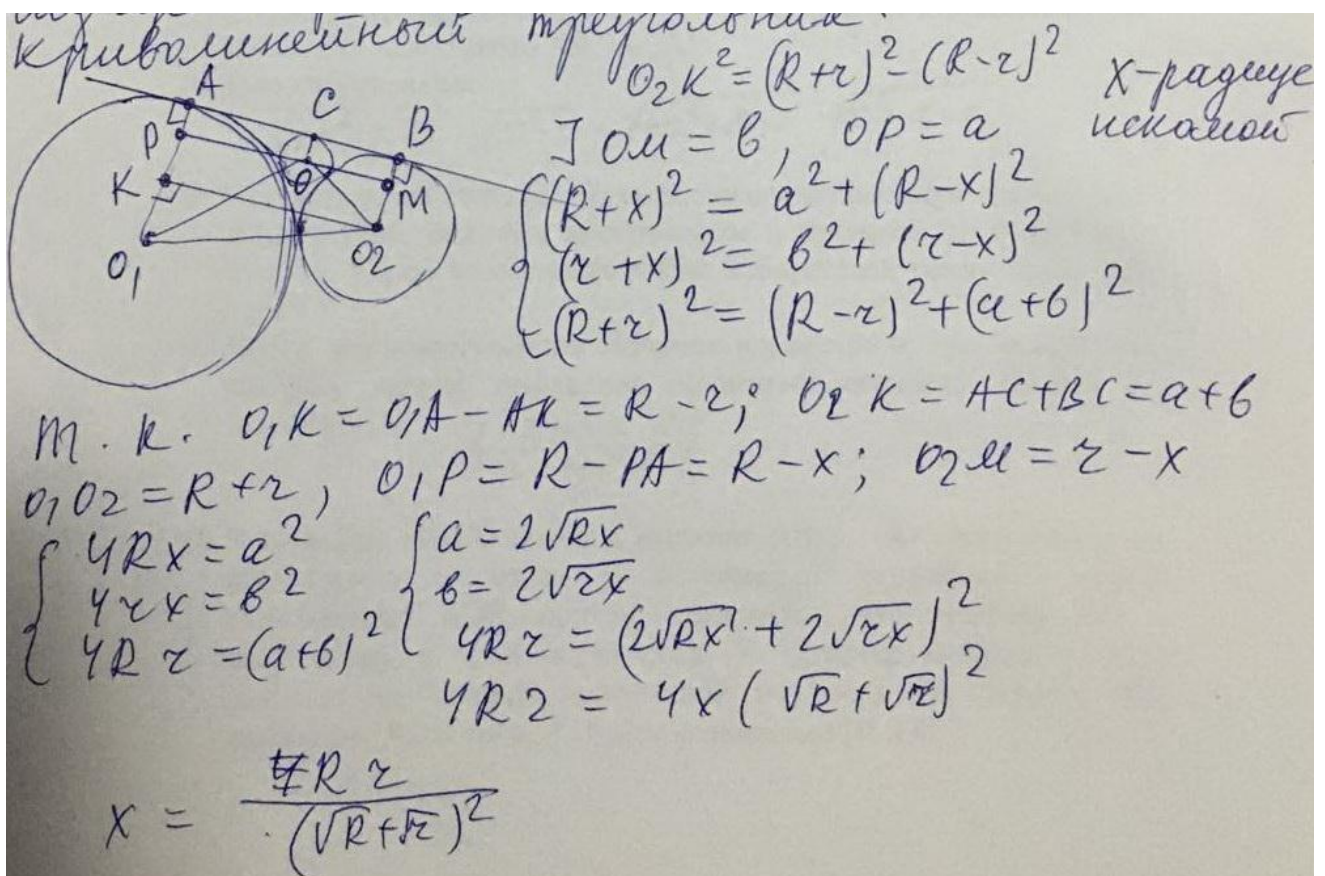 криволинейный треугольник.
O₂K² = (R+r)² - (R-r)²
X - радиус
искомой
A
C
B
P
O
K
M
O₁
O₂
] OM = в, OP = a
(R+x)² = a² + (R-x)²
(r+x)² = в² + (r-x)²
(R+r)² = (R-r)² + (a+в)²
т. к. O₁K = O₁A - AK = R - r; O₂K = AC+BC = a+в
O₁O₂ = R+r, O₁P = R - PA = R - x; O₂M = r - x
{ 4Rx = a² { a = 2√Rx
4rx = в² в = 2√rx
4Rr = (a+в)² 4Rr = (2√Rx + 2√rx)²
4Rr = 4x(√R + √r)²
x = Rr / (√R+√r)²